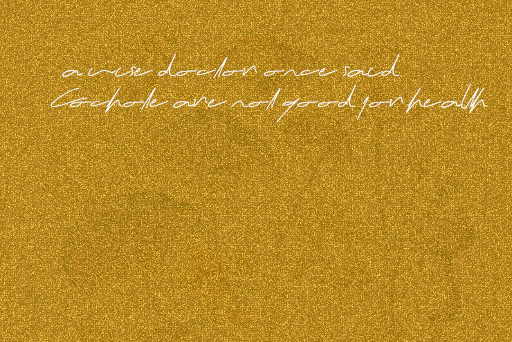 a wise doctor once said
are not good for health